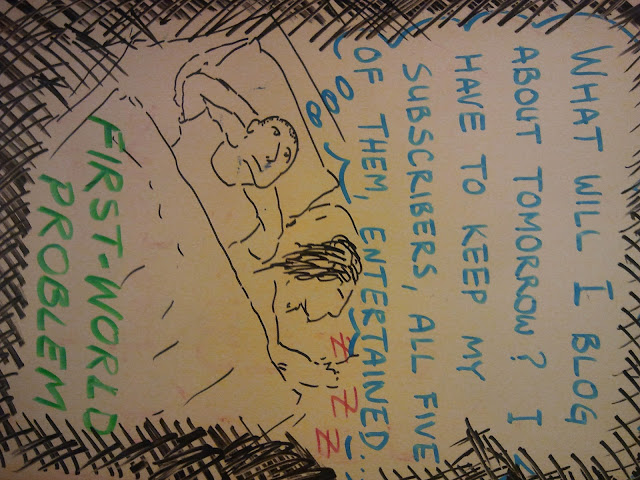 WHAT WILL I BLOG
ABOUT TOMORROW? I
HAVE TO KEEP MY
SUBSCRIBERS, ALL FIVE
OF THEM, ENTERTAINED...
Z Z Z
FIRST-WORLD
PROBLEM